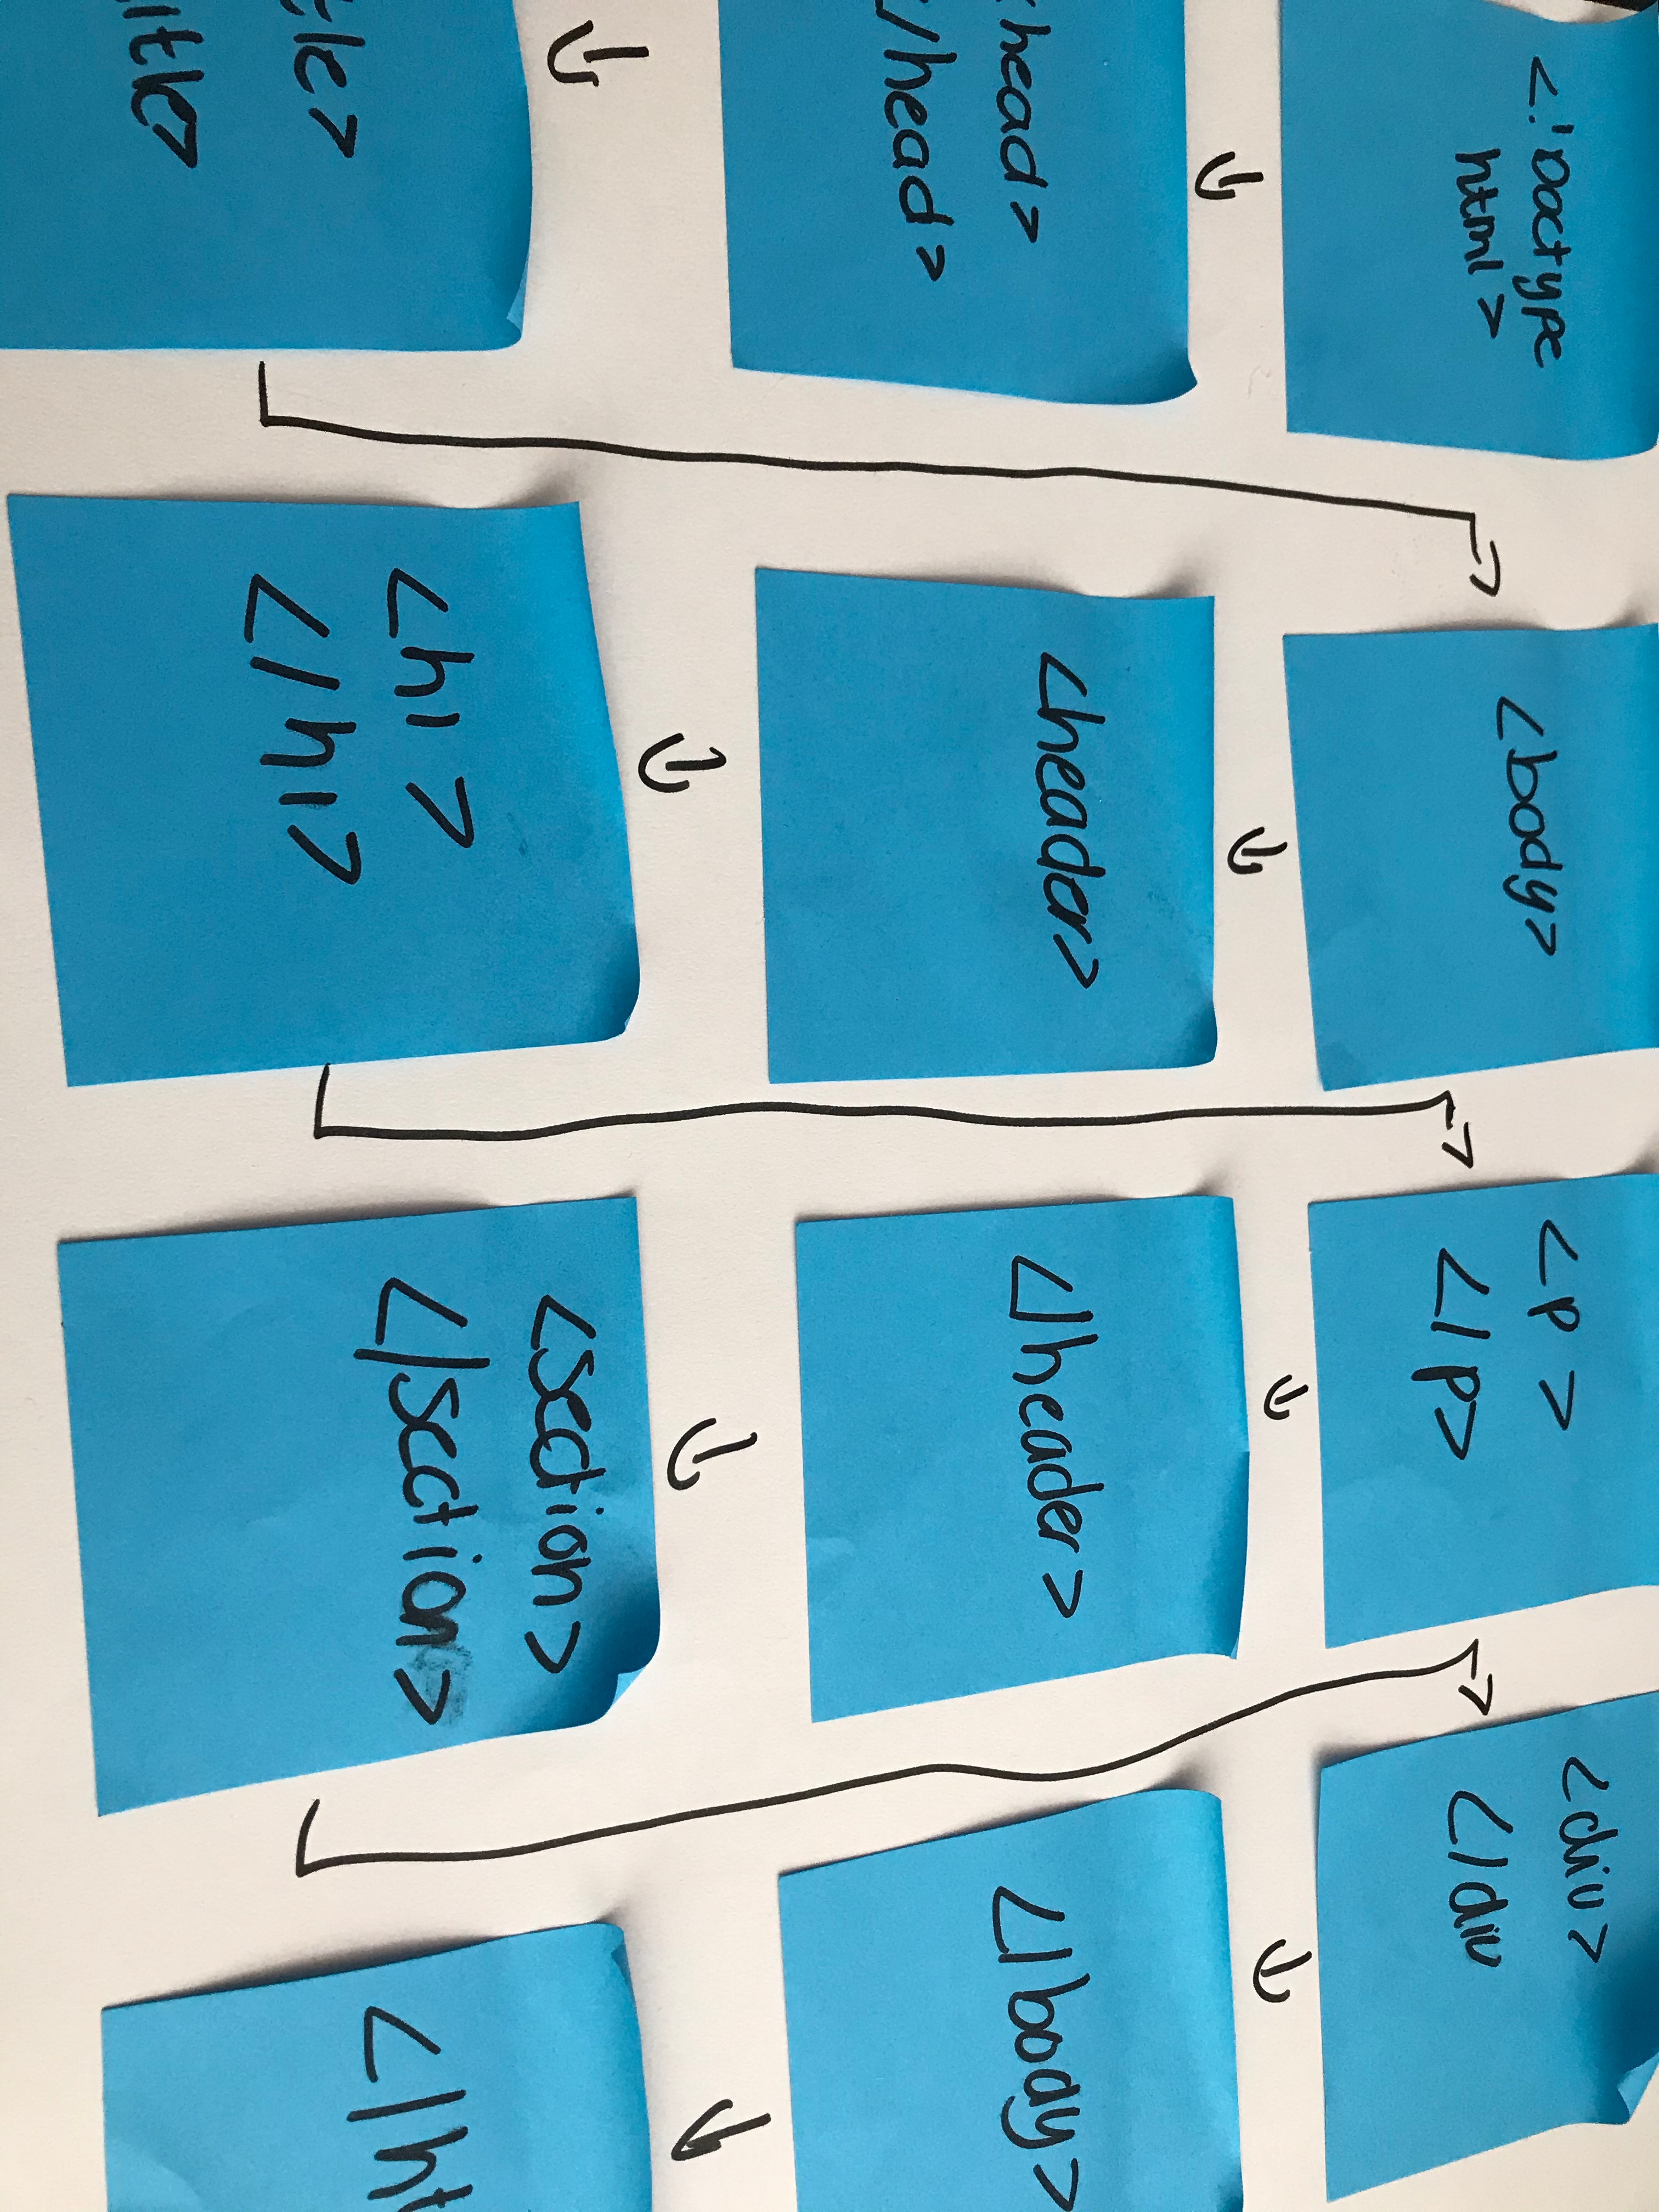 <!Doctype
html>
head>
/head>
tle>
itle>
<body>
<header>
<h1>
</h1>
<p>
</p>
</header>
<section>
</section>
<div>
</div
</body>
</ht